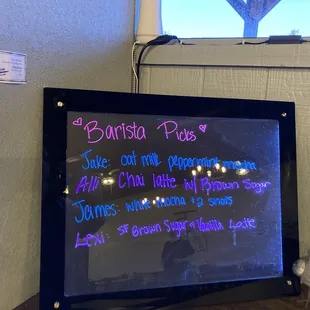 Barista Picks
Jake: oat milk peppermint mocha
Alli Chai latte w/ Brown Sugar
James: white mocha + 2 shots
Lexi: SF Brown Sugar + Vanilla Latte